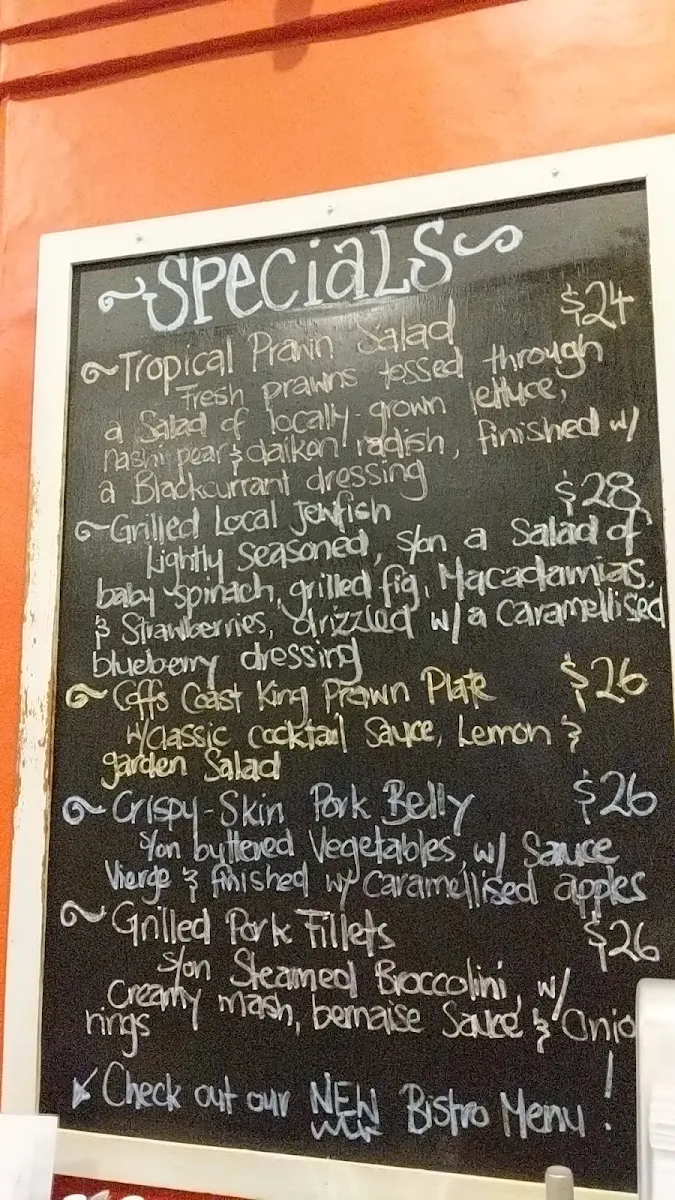 ~SPeCiaLS~
Tropical Prawn Salad $24
Fresh prawns tossed through
a Salad of locally-grown lettuce,
nashi pear & daikon radish, finished w/
a Blackcurrant dressing
Grilled Local Jewfish $28
Lightly Seasoned, s/on a Salad of
baby spinach, grilled fig, Macadamias,
& Strawberries, drizzled w/ a Caramellised
blueberry dressing
Coffs Coast King Prawn Plate $26
w/classic cocktail Sauce, Lemon &
garden Salad
Crispy-Skin Pork Belly $26
s/on buttered Vegetables, w/ Sauce
Vierge & finished w/ Caramellised apples
Grilled Pork Fillets $26
s/on Steamed Broccolini, w/
Creamy mash, bernaise Sauce & Onio
rings
Check out our NEW Bistro Menu!